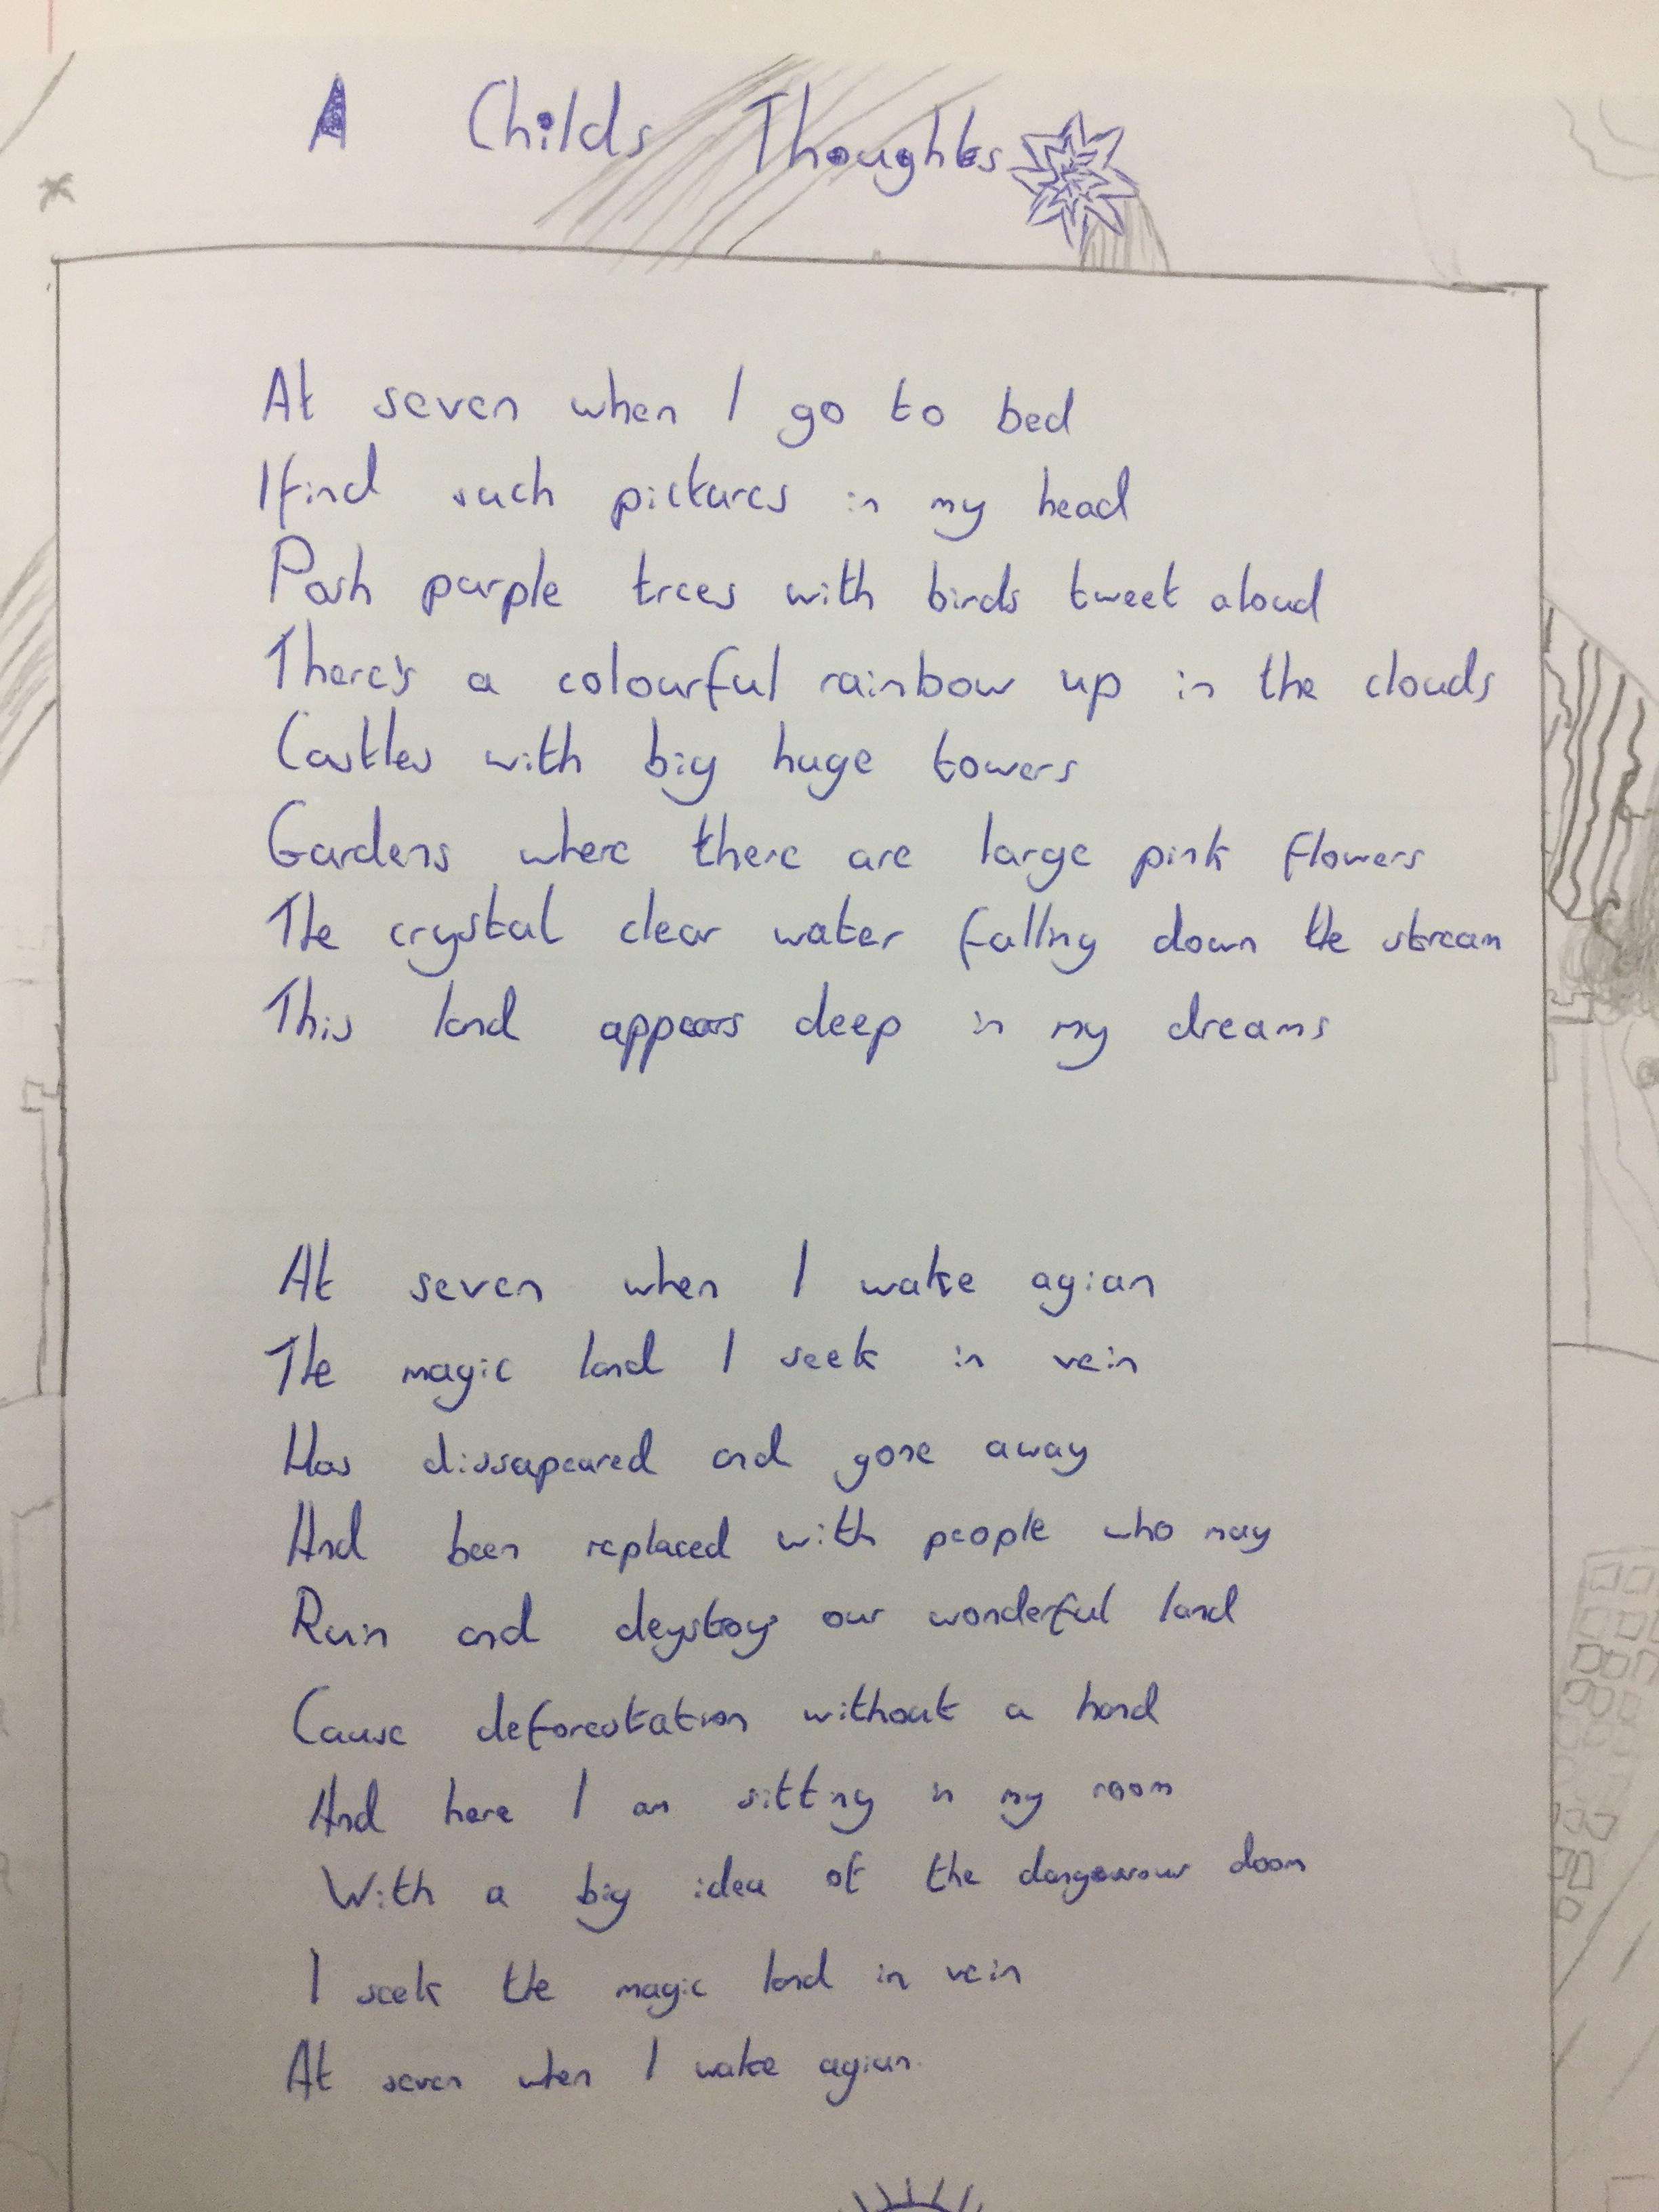 A Childs Thoughts
At seven when I go to bed
I find such pictures in my head
Posh purple trees with birds tweet aloud
There's a colourful rainbow up in the clouds
Castles with big huge towers
Gardens where there are large pink flowers
The crystal clear water falling down the stream
This land appears deep in my dreams
At seven when I wake agian
The magic land I seek in vein
Has dissapeared and gone away
And been replaced with people who may
Ruin and deystroy our wonderful land
Cause deforestation without a hand
And here I am sitting in my room
With a big idea of the dangerour doom
I seek the magic land in vein
At seven when I wake agian.